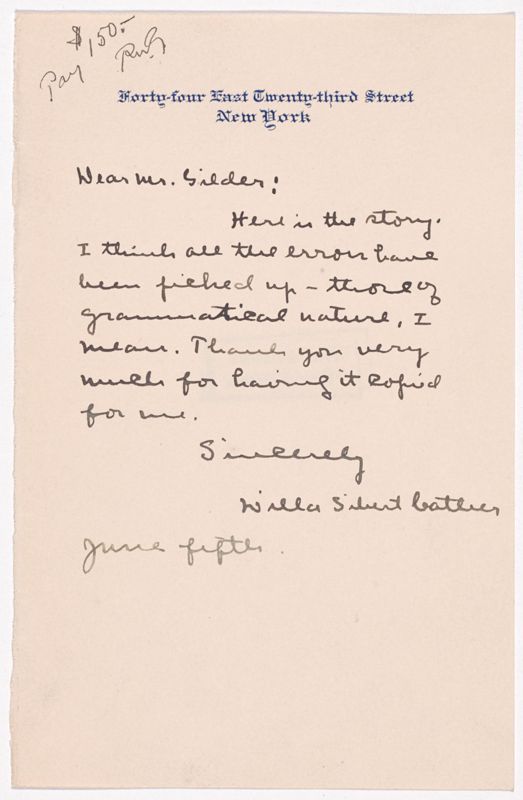 $150-
Pay RWG
Forty-four East Twenty-third Street
New York
Dear Mr. Gilder:
Here is the story.
I think all the errors have
been picked up - those of
grammatical nature, I
mean. Thank you very
much for having it copied
for me.
Sincerely
Willa Sibert Cather
June fifth.